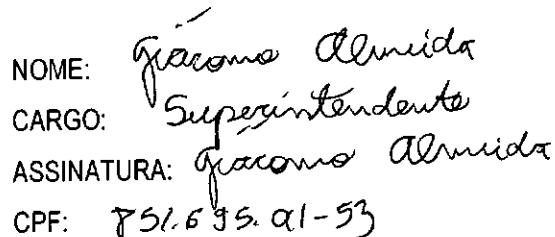 NOME: Giácomo Almeida
CARGO: Superintendente
ASSINATURA: Giacomo Almeida
CPF: